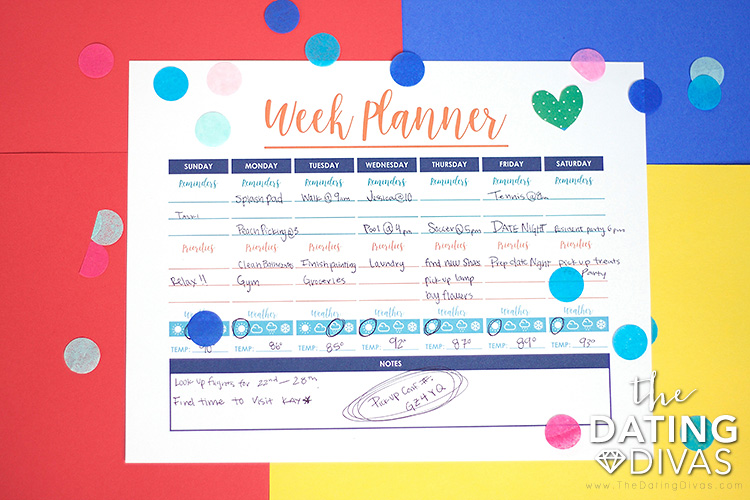 Week Planner
SUNDAY MONDAY TUESDAY WEDNESDAY THURSDAY FRIDAY SATURDAY
Reminders Reminders Reminders Reminders Reminders Reminders Reminders
Splash Pad Walk @ 9am Jessica @ 10 Tennis @ 8am
Peach Picking @ 3 Pool @ 4pm Soccer @ 5pm DATE NIGHT party 6pm
Priorities Priorities Priorities Priorities Priorities Priorities Priorities
Clean Finish painting Laundry find new shoes Prep date Night pick-up treats
Relax !! Gym Groceries pick-up lamp Party
buy flowers
Weather Weather Weather Weather Weather Weather Weather
TEMP: 90° TEMP: 86° TEMP: 85° TEMP: 92° TEMP: 87° TEMP: 89° TEMP: 93°
NOTES
Look up flights for 22nd - 28th
Find time to visit KAY*
Pick-up Conf #:
GZ4YQ
the
DATING
DIVAS
www.TheDatingDivas.com